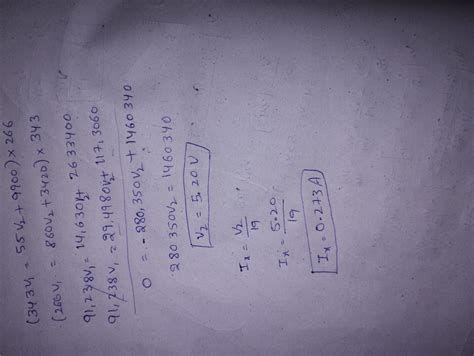 (343V₁ = 55V₂ + 9900) × 266
(266V₁ = 860V₂ + 3420) × 343
91,238V₁ = 14,630V₂ + 2633400
91,238V₁ = 294980V₂ + 1173060
0 = - 280,350V₂ + 1460340
280350V₂ = 1460340
V₂ = 5.20V
Iₓ = V₂/19
Iₓ = 5.20/19
Iₓ = 0.273A